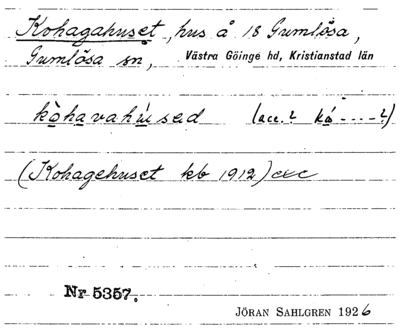 Kohagahuset, hus å 18 Gumlösa,
Gumlösa sn, Västra Göinge hd, Kristianstad län
kòhavahùsed (acc.? kó----?)
(Kohagehuset kb 1912)
Nr 5357.
JÖRAN SAHLGREN 1926